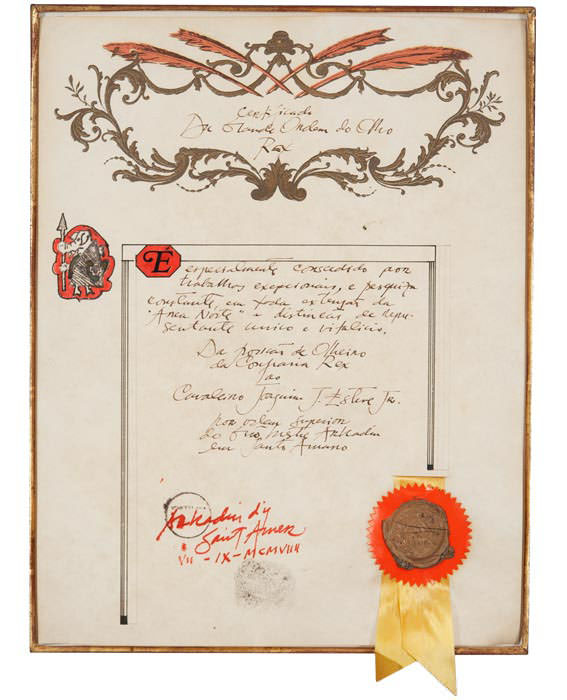 Certificado
Da Grande Ordem do Olho
Rex
É
especialmente concedido por
trabalhos exepcionais, e pesquiza
constante, em toda extenção da
"Area Norte" e distinção de repre-
sentante unico e vitalicio.
Da posição de Olheiro
da Confraria Rex
ao
Cavaleiro Joaquim J. Esteve Jor.
por ordem superior
do Grão Mestre Arkadin
em Santo Amaro
Arkadin d'y
Saint Amer
VII - IX - MCMVIII